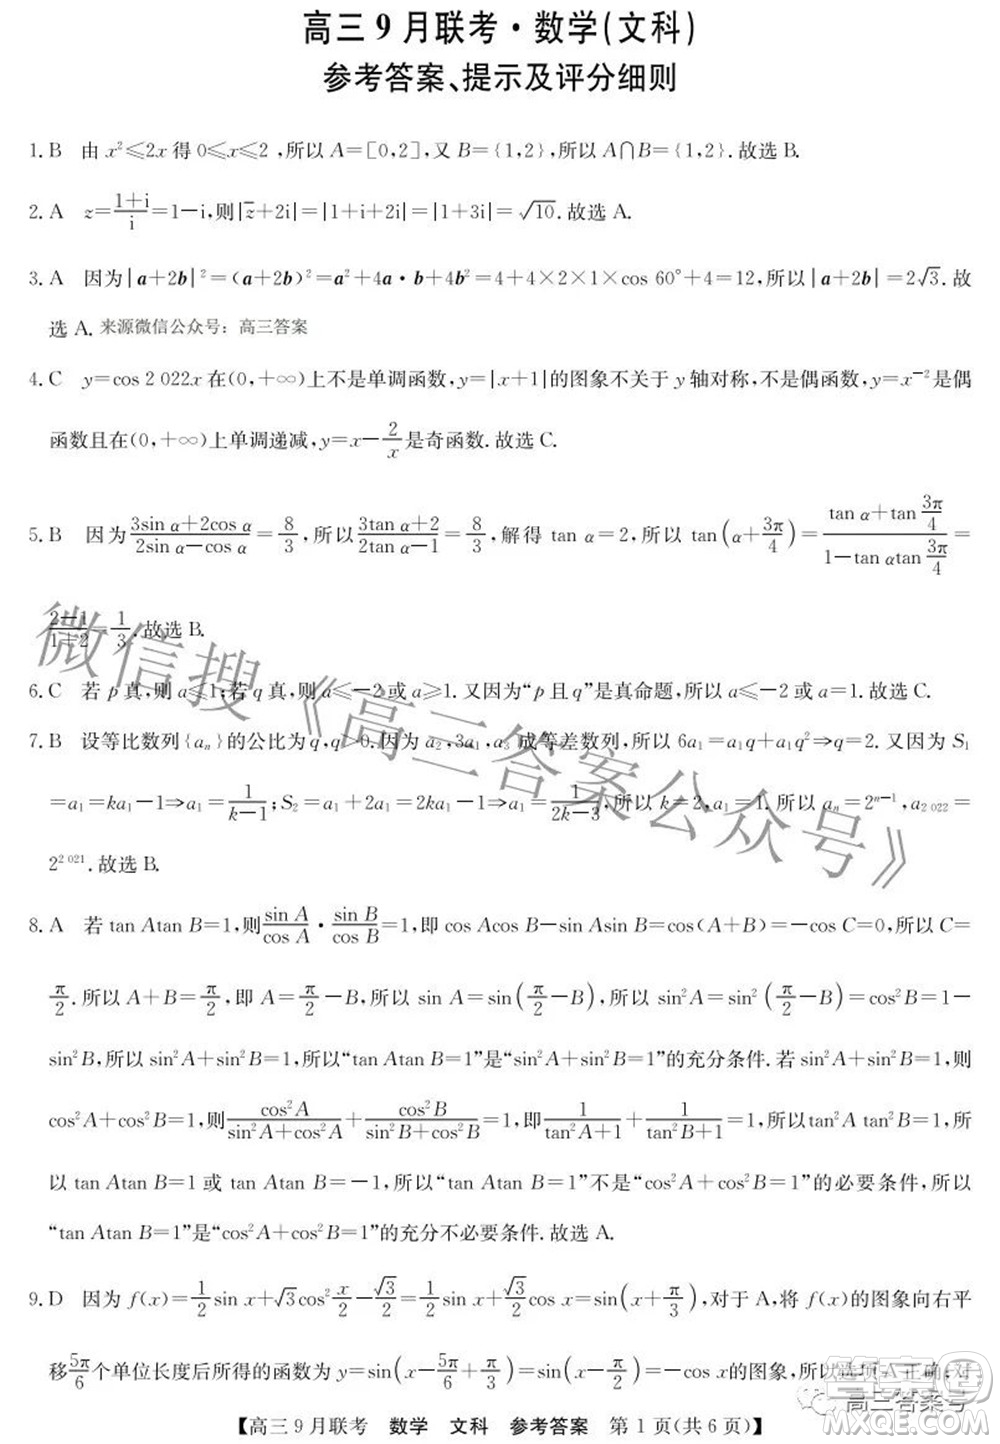 高三9月联考·数学(文科)
参考答案、提示及评分细则
1. B 由 x²⩽2x 得 0⩽x⩽2 ,所以 A=[0,2],又 B={1,2},所以 A∩B={1,2}.故选 B.
2. A z=(1+i)/i=1-i,则|z̅+2i|=|1+i+2i|=|1+3i|=√10.故选 A.
3. A 因为|a+2b|²=(a+2b)²=a²+4a·b+4b²=4+4×2×1×cos 60°+4=12,所以|a+2b|=2√3.故
选 A. 来源微信公众号：高三答案
4. C y=cos 2 022x 在(0,+∞)上不是单调函数,y=|x+1|的图象不关于 y 轴对称,不是偶函数,y=x⁻²是偶
函数且在(0,+∞)上单调递减,y=x-2/x是奇函数.故选 C.
5. B 因为(3sin α+2cos α)/(2sin α-cos α)=8/3,所以(3tan α+2)/(2tan α-1)=8/3,解得 tan α=2,所以 tan(α+3π/4)=(tan α+tan 3π/4)/(1-tan αtan 3π/4)=
(2-1)/(1+2)=1/3.故选 B.
6. C 若 p 真,则 a⩽1;若 q 真,则 a⩽-2 或 a⩾1.又因为“p 且 q”是真命题,所以 a⩽-2 或 a=1.故选 C.
7. B 设等比数列{aₙ}的公比为 q,q>0.因为 a₂,3a₁,a₃ 成等差数列,所以 6a₁=a₁q+a₁q²⇒q=2.又因为 S₁
=a₁=ka₁-1⇒a₁=1/(k-1);S₂=a₁+2a₁=2ka₁-1⇒a₁=1/(2k-3),所以 k=2,a₁=1.所以 aₙ=2ⁿ⁻¹,a₂ ₀₂₂=
2² ⁰²¹.故选 B.
8. A 若 tan Atan B=1,则(sin A/cos A)·(sin B/cos B)=1,即 cos Acos B-sin Asin B=cos(A+B)=-cos C=0,所以 C=
π/2.所以 A+B=π/2,即 A=π/2-B,所以 sin A=sin(π/2-B),所以 sin²A=sin²(π/2-B)=cos²B=1-
sin²B,所以 sin²A+sin²B=1,所以“tan Atan B=1”是“sin²A+sin²B=1”的充分条件.若 sin²A+sin²B=1,则
cos²A+cos²B=1,则cos²A/(sin²A+cos²A)+cos²B/(sin²B+cos²B)=1,即1/(tan²A+1)+1/(tan²B+1)=1,所以tan²A tan²B=1,所
以 tan Atan B=1 或 tan Atan B=-1,所以“tan Atan B=1”不是“cos²A+cos²B=1”的必要条件,所以
“tan Atan B=1”是“cos²A+cos²B=1”的充分不必要条件.故选 A.
9. D 因为 f(x)=1/2 sin x+√3cos² x/2-√3/2=1/2 sin x+√3/2 cos x=sin(x+π/3),对于 A,将 f(x)的图象向右平
移5π/6个单位长度后所得的函数为 y=sin(x-5π/6+π/3)=sin(x-π/2)=-cos x的图象,所以选项 A 正确;对
【高三9月联考 数学 文科 参考答案 第 1 页(共 6 页)】
微信搜《高三答案公众号》
高三答案号
答案圈
MXQE.COM